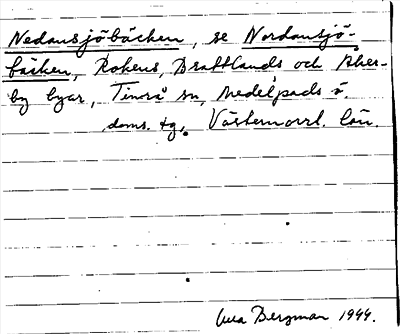 Nedansjöbäcken, se Nordansjö-
bäcken, Rokens, Brattlands och Åker-
by byar, Timrå sn, Medelpads ö.
doms. tg. Västernorrl. län.
Bergman 1944.